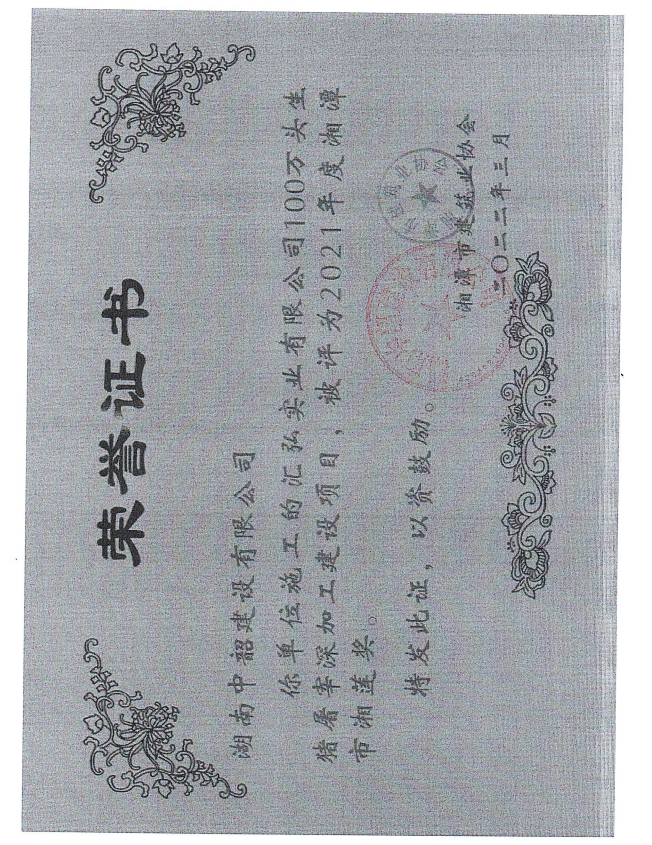 荣誉证书
湖南中韶建设有限公司
你单位施工的汇弘实业有限公司100万头生
猪屠宰深加工建设项目，被评为2021年度湘潭
市湘莲奖。
特发此证，以资鼓励。
湘潭市建筑业协会
二〇二二年三月